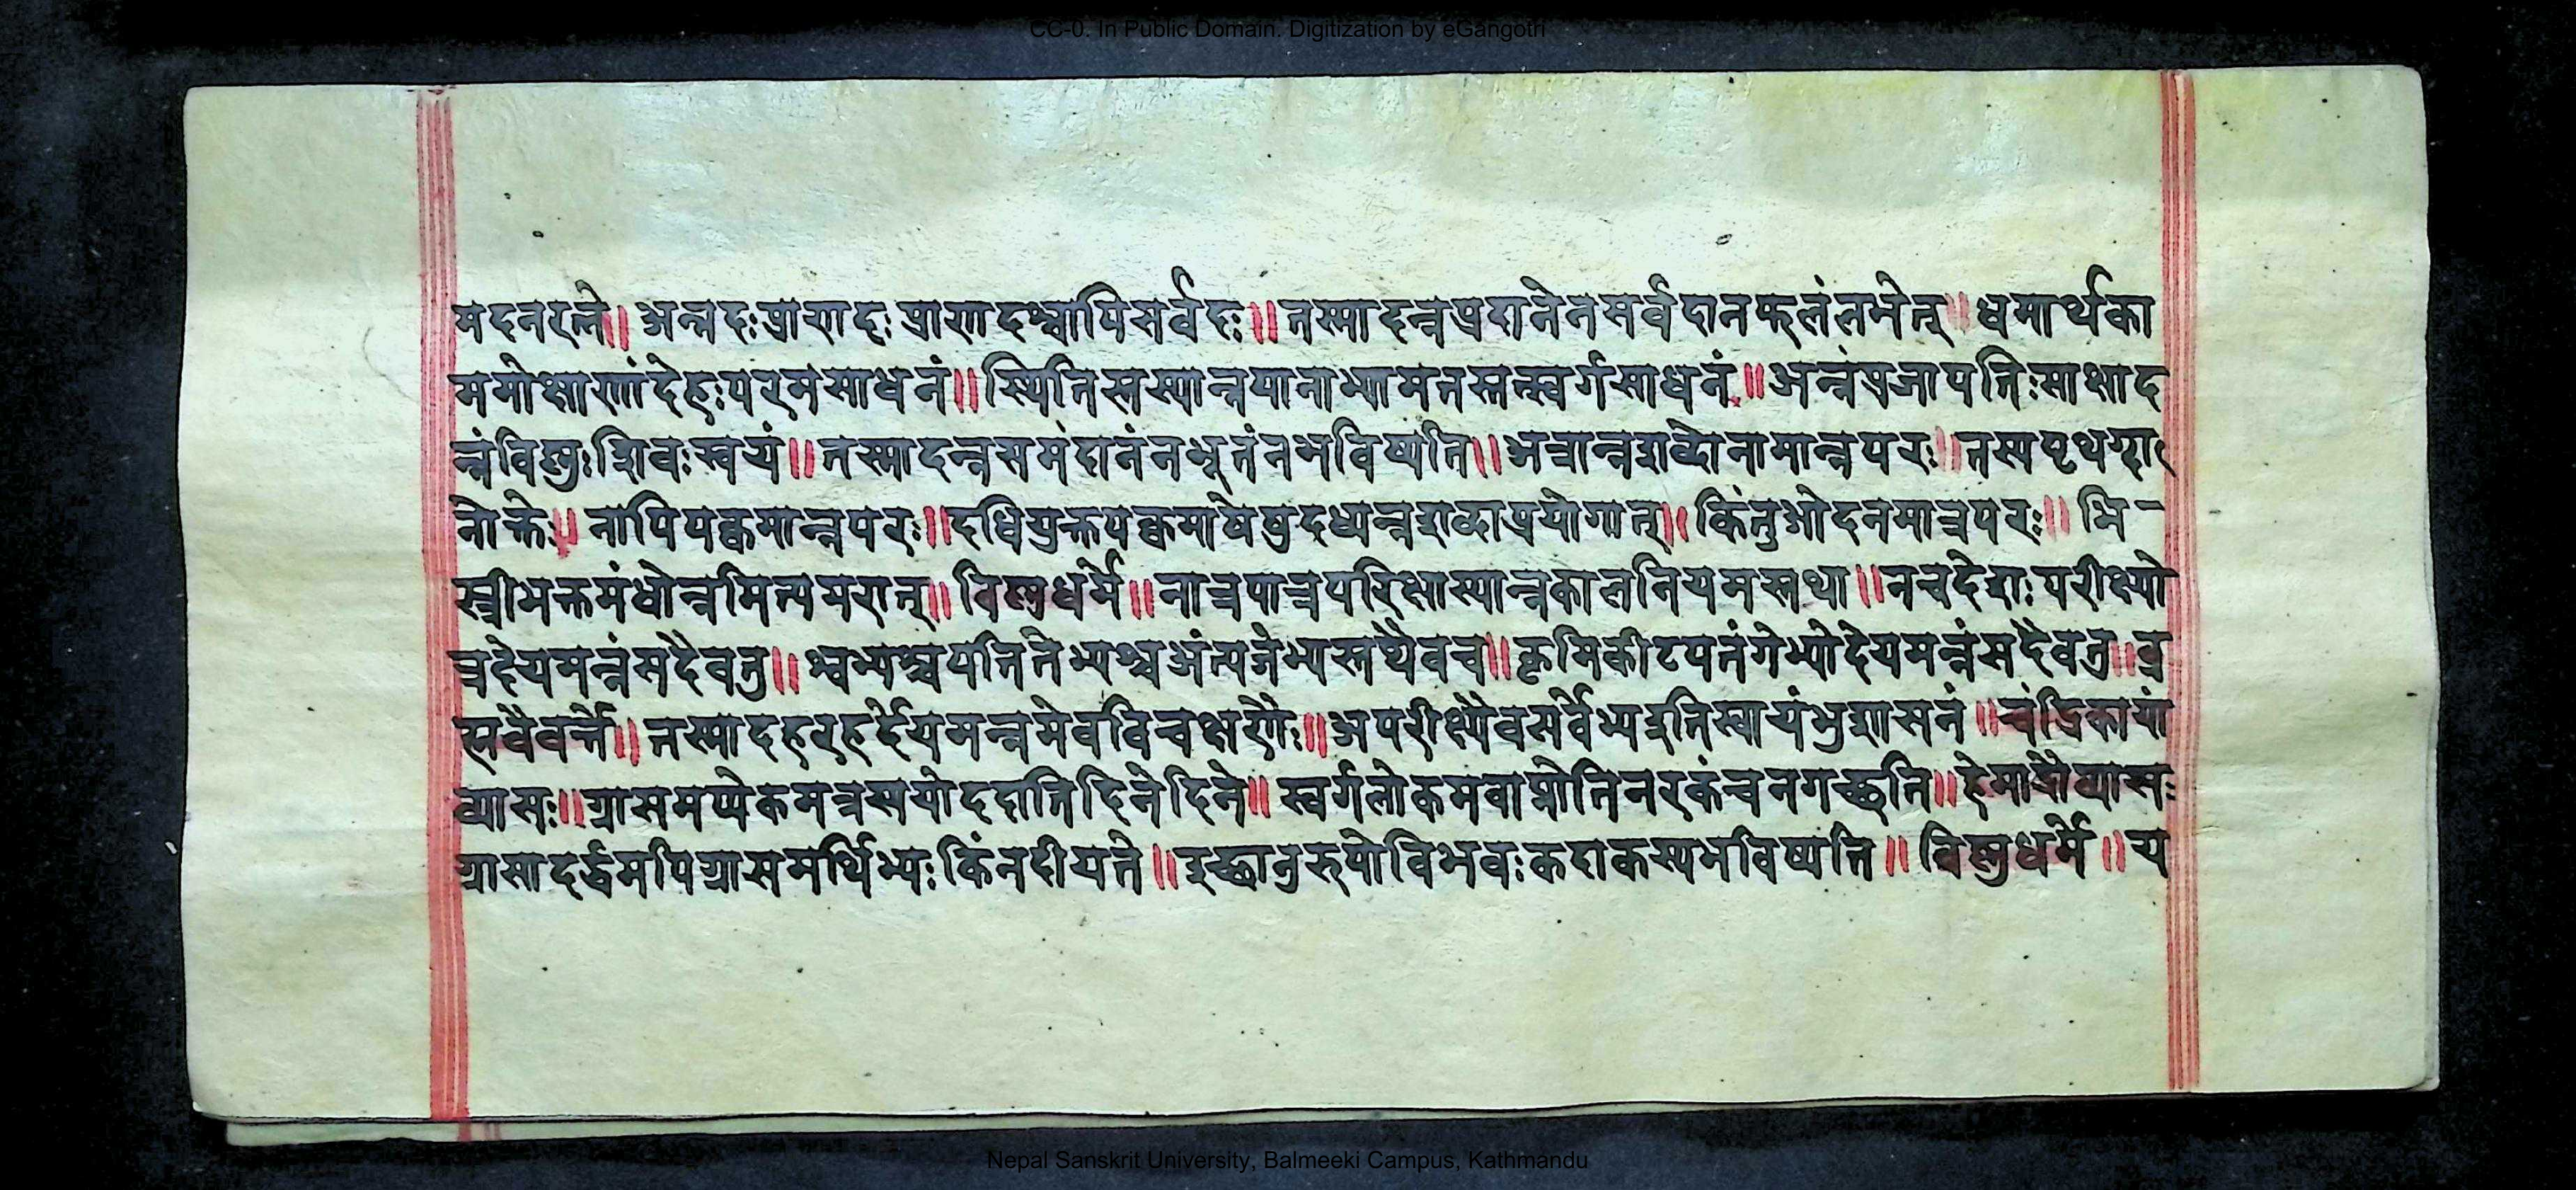 CC-0. In Public Domain. Digitization by eGangotri
मदनरत्ने॥ अन्नदःप्राणदः प्राणदश्चापिसर्वदः॥ तस्मादन्नप्रदानेनसर्वदानफलंलभेत्॥ धमार्थका
ममोक्षाणांदेहःपरमसाधनं॥ स्थितिस्तस्यान्नपानाभ्यामतस्तत्स्वर्गसाधनं॥ अन्नंप्रजापतिःसाक्षाद
न्नंविष्णुःशिवःस्वयं॥ तस्मादन्नसमंदानंनभूतंनभविष्यति॥ अत्रान्नशब्दोनामान्नपरः॥ तस्यपृथग्दा
नोक्तेः॥ नापिपक्वमान्नपरः॥ दधियुक्तपक्वमाषेषुदध्यन्नशब्दाप्रयोगात्॥ किंतुओदनमात्रपरः॥ भि-
स्त्रीभक्तमंधोन्नमित्यमरात्॥ विष्णुधर्मे॥ नात्रपात्रपरिक्षास्यान्नकालनियमस्तथा॥ नचदेशः परीक्ष्यो
त्रदेयमन्नंसदैवतु॥ श्वभ्यश्चपतितेभ्यश्च अंत्यजेभ्यस्तथैवच॥ कृमिकीटपतंगेभ्योदेयमन्नंसदैवतु॥ ब्र
ह्मवैवर्त्ते॥ तस्मादहरहर्देयमन्नमेवविचक्षणैः॥ अपरीक्ष्यैवसर्वेभ्यइतिस्वायंभुशासनं॥ चंद्रिकायां
व्यासः॥ ग्रासमप्येकमन्नस्ययोददातिदिनेदिने॥ स्वर्गलोकमवाप्नोतिनरकंचनगच्छति॥ हेमाद्रौव्यासः
ग्रासादर्द्धमपिग्रासमर्थिभ्यः किंनदीयते॥ इच्छानुरुपोविभवःकदाकस्यभविष्यति॥ विष्णुधर्मे॥ य
Nepal Sanskrit University, Balmeeki Campus, Kathmandu